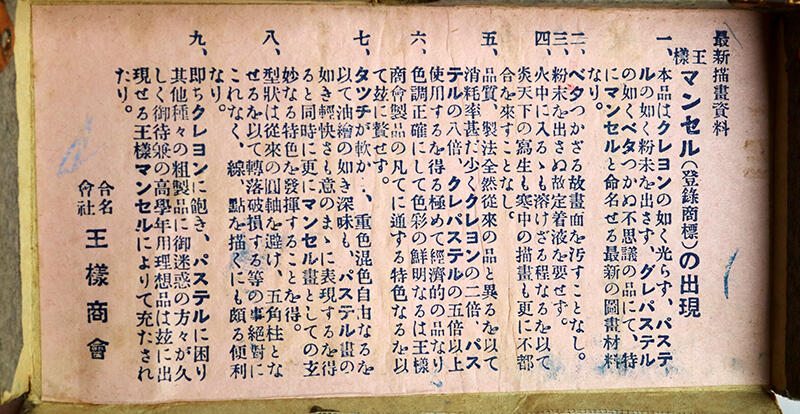 最新描畫資料
王樣 マンセル(登錄商標)の出現
一、本品はクレヨンの如く光らず、パステ
ルの如く粉末を出さず、グレパステル
の如くベタつかぬ不思議の品にて、特
にマンセルと命名せる最新の圖畫材料
なり。
二、ベタつかざる故畫面を汚すことなし。
三、粉末を出さぬ故定着液を要せず。
四、火中に入るゝも溶けざる程なるを以て
炎天下の寫生も寒中の描畫も更に不都
合を來すことなし。
五、品質、製法全然從來の品と異るを以て
消耗率甚だ少くクレヨンの二倍、パス
テルの八倍、クレパステルの五倍以上
使用するを得る極めて經濟的の品なり
六、色調正確にして色彩の鮮明なるは王樣
商會製品の凡てに通する特色なるを以
て玆に贅せず。
七、タツチが軟か、重色混色自由なるを
以て油繪の如き深味も、パステル畫の
如き輕快さも意のまゝに表現するを得
ると同時に更にマンセル畫としての玄
妙なる特色を發揮することを得。
八、型狀は從來の圓軸を避け、五角柱とな
せるを以て轉落破損する等の事絕對に
これなく、線、點を描くにも頗る便利
なり。
九、即ちクレヨンに飽き、パステルに困り
其他種々の粗製品に御迷惑の方々が久
しく御待兼の高學年用理想品は玆に出
現せる王樣マンセルによりて充たされ
たり。
合名會社 王樣商會